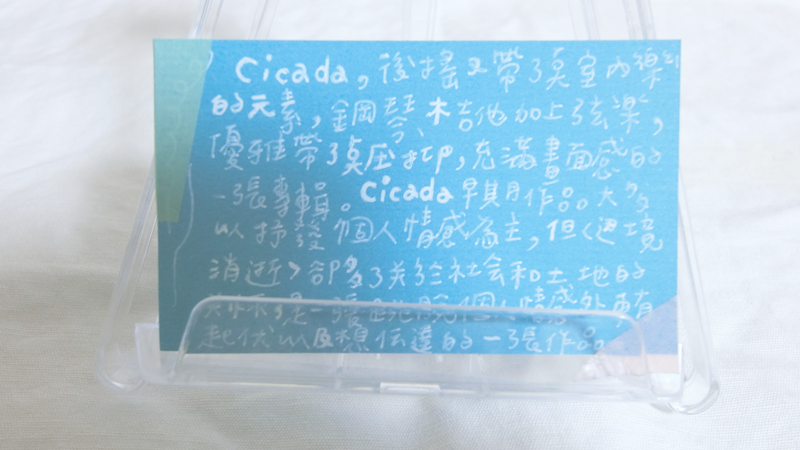 Cicada，後搖又帶了奌室內樂
的元素，鋼琴、木吉他加上弦樂，
優雅帶了奌压抑，充滿畫面感的
一張專輯。Cicada早期作品大多
以抒發個人情感為主，但《边境
消逝》卻多了关於社会和土地的
是一張跳脫個人情感外
起伏以及想傳達的一張作品